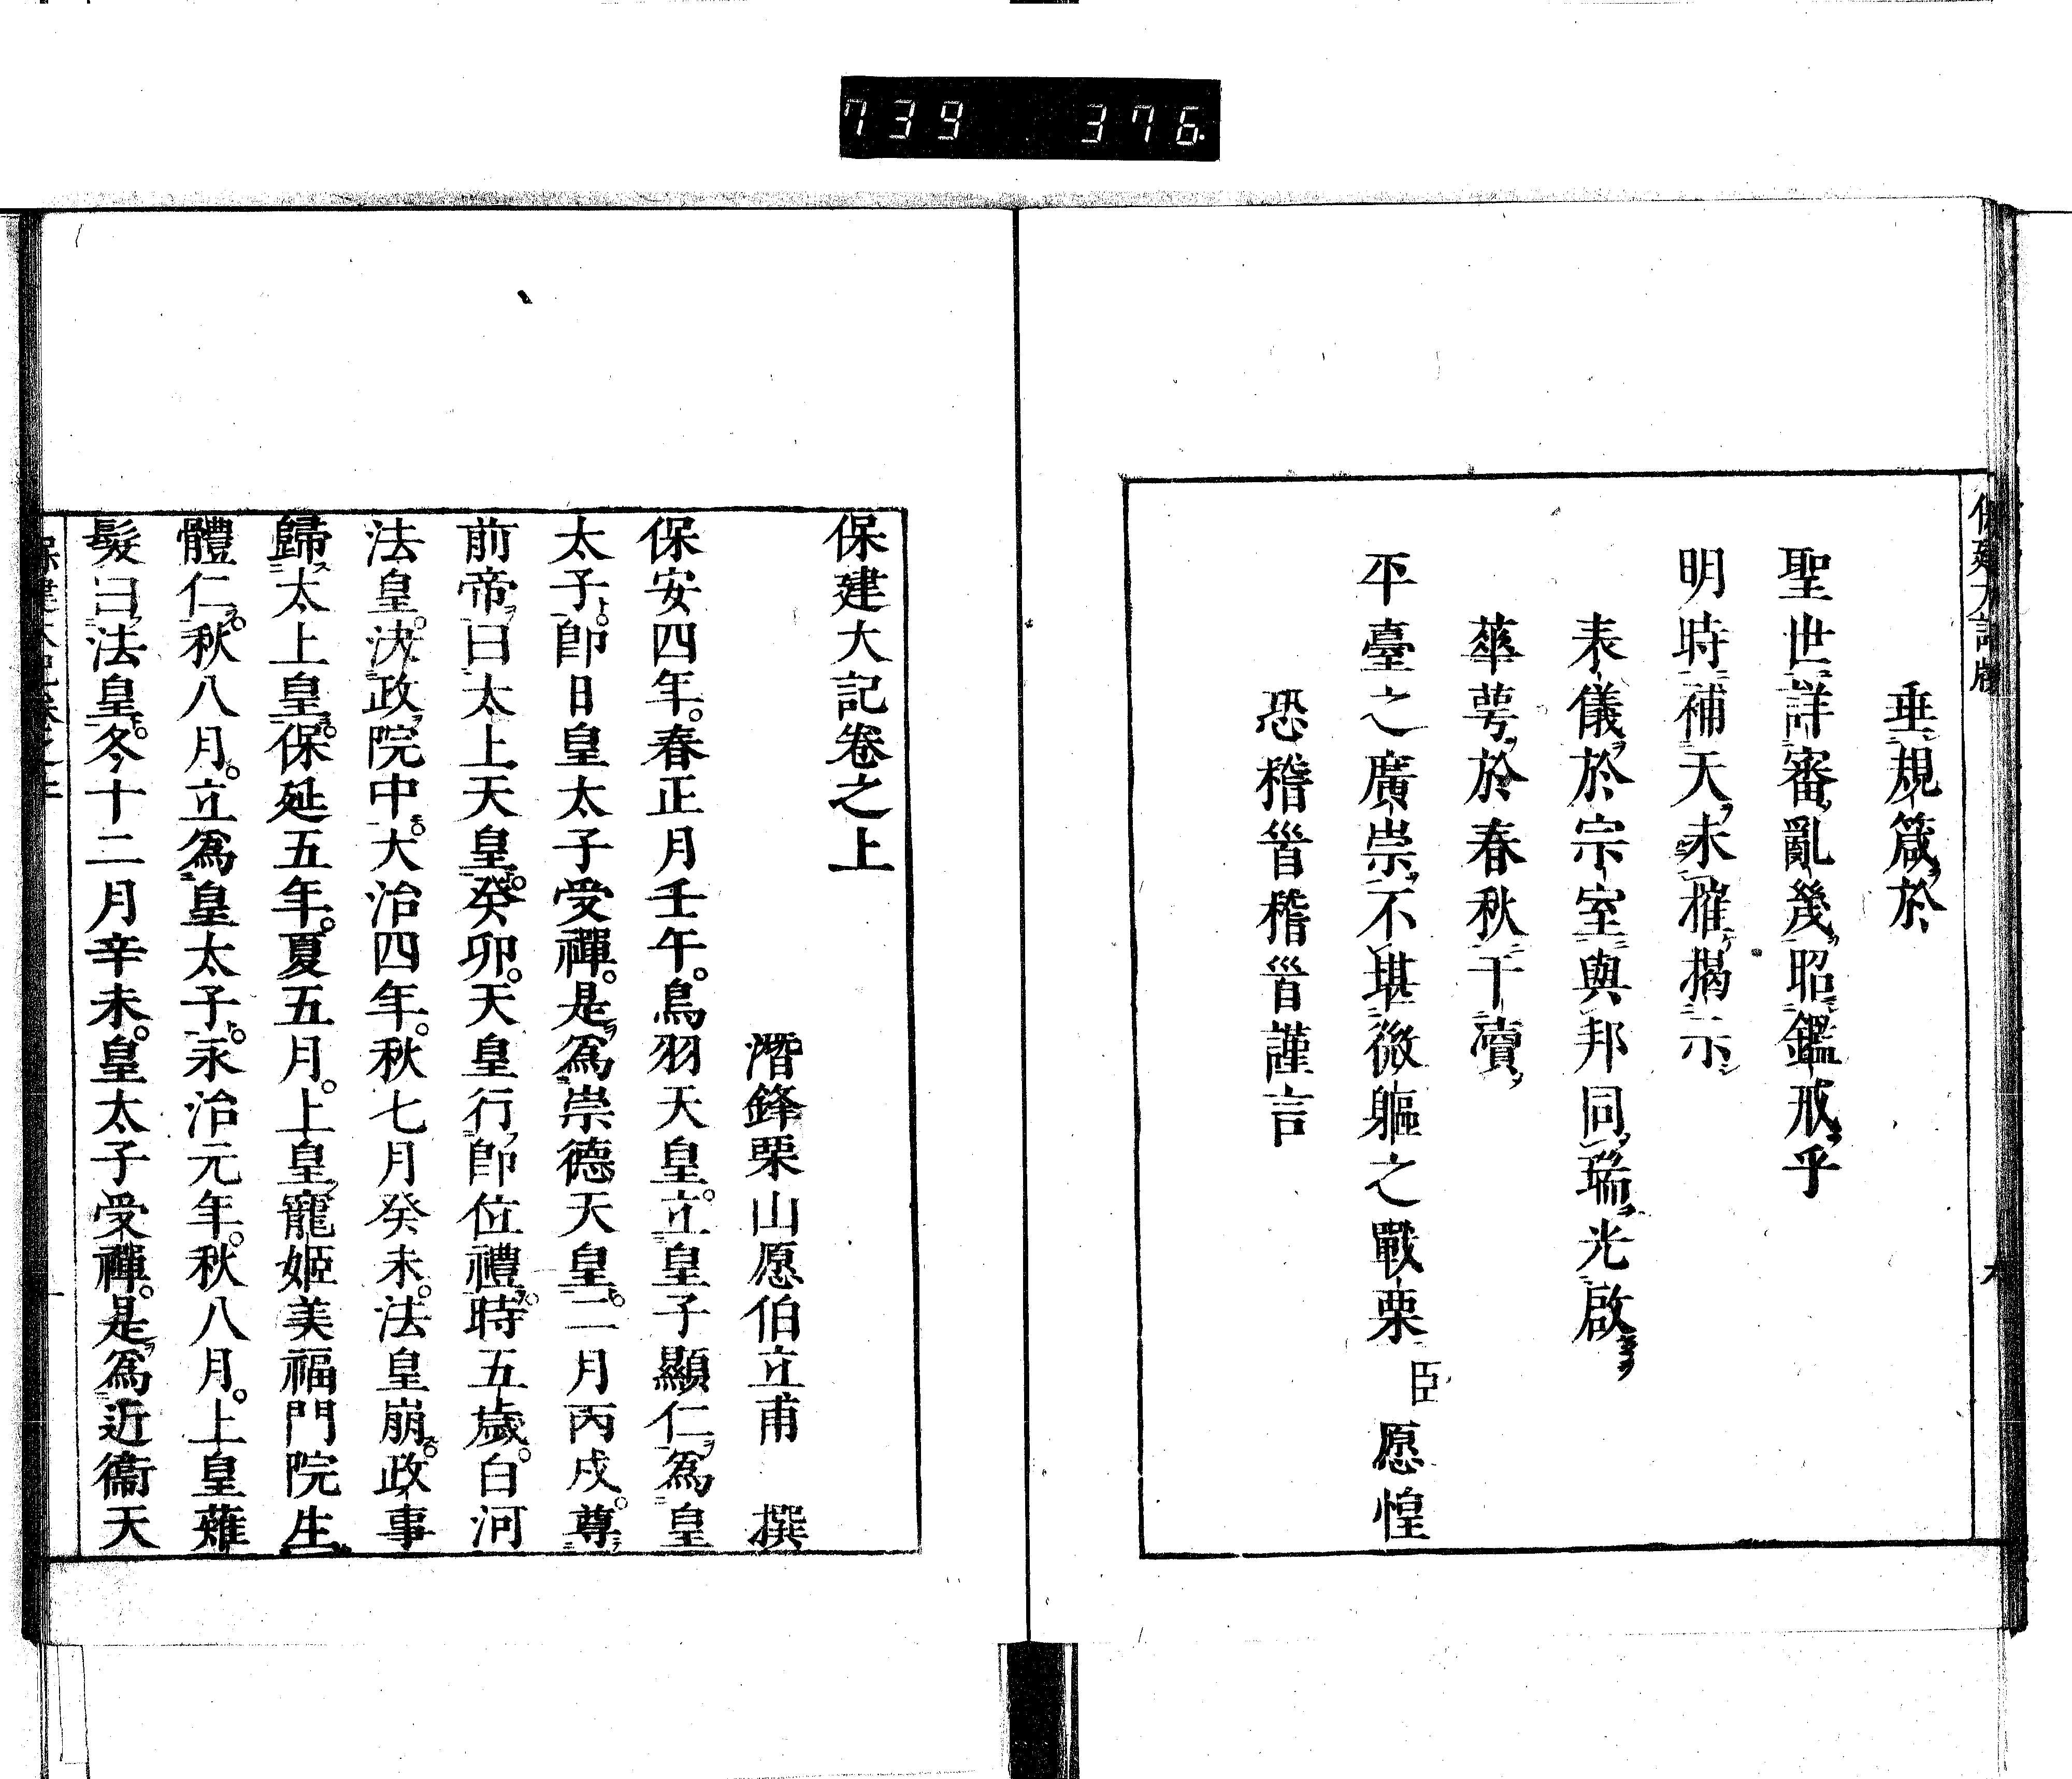 739 376
垂規箴於
聖世詳審亂幾昭鑑戒乎
明時補天未摧揭示
表儀於宗室與邦同瑞光啟
華萼於春秋干瀆
平臺之廣崇不堪微軀之戰栗臣愿惶
恐稽首稽首謹言
保建大記卷之上
潛鋒栗山愿伯立甫 撰
保安四年。春正月壬午。鳥羽天皇。立皇子顯仁爲皇
太子。卽日皇太子受禪。是爲崇德天皇。二月丙戌。尊
前帝曰太上天皇。癸卯。天皇行卽位禮。時五歲。白河
法皇。決政院中。大治四年。秋七月癸未。法皇崩。政事
歸太上皇。保延五年。夏五月。上皇寵姬美福門院生
體仁。秋八月。立爲皇太子。永治元年。秋八月。上皇薙
髮曰法皇。冬十二月辛未。皇太子受禪。是爲近衞天